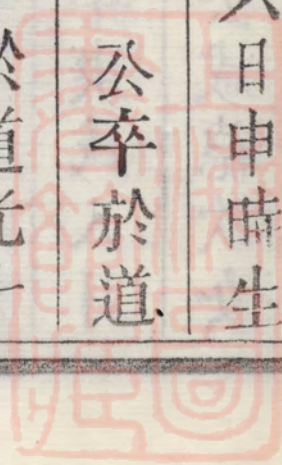 日申時生
公卒於道
於道光